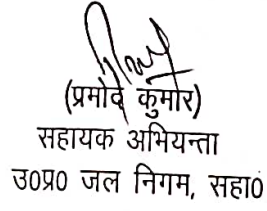 (प्रमोद कुमार)
सहायक अभियन्ता
उ0प्र0 जल निगम, सहा0